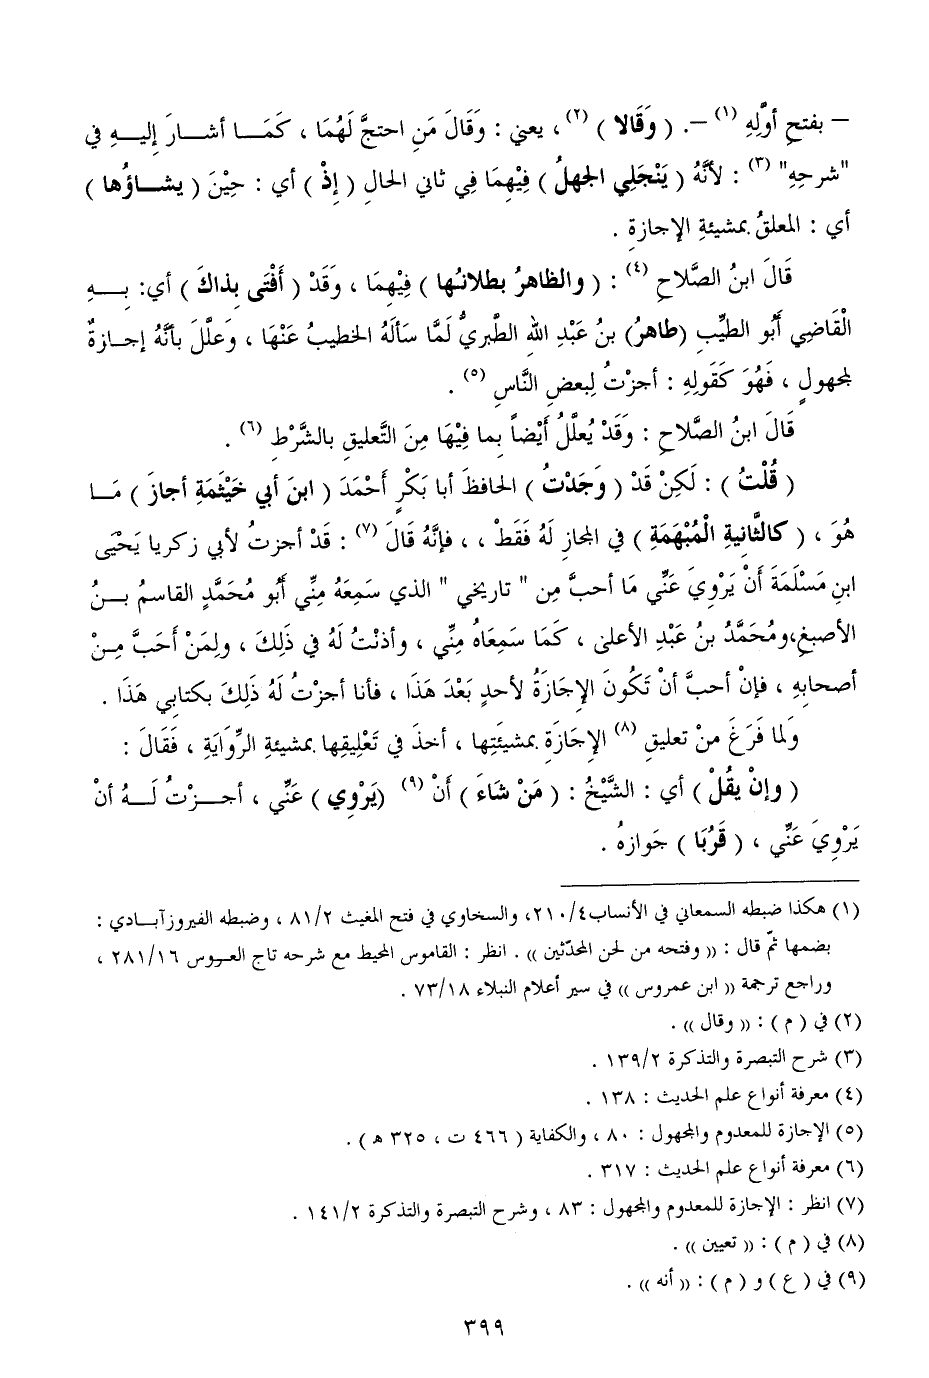 – بفتحِ أوَّلِهِ (١) –. ( وَقَالا ) (٢) ، يعني : وَقَالَ مَن احتجَّ لَهُمَا ، كَمَــا أشــارَ إليــهِ في
"شرحِهِ" (٣) : لأنَّهُ ( يَنْجَلِي الجهلُ ) فِيْهِمَا فِي ثاني الحالِ ( إذْ ) أي : حِيْنَ ( يشــاؤُها )
أي : المعلقُ بمشيئةِ الإجازةِ .
قَالَ ابنُ الصَّلاحِ (٤) : ( والظاهرُ بطلانُها ) فِيْهِمَا ، وَقَدْ ( أفْتَى بذاكَ ) أي: بــهِ
الْقَاضِي أَبُو الطيِّبِ (طاهرُ) بنُ عَبْدِ اللهِ الطَّبريُّ لَمَّا سألَهُ الخطيبُ عَنْهَا ، وَعلَّلَ بأنَّهُ إجــازةٌ
لمجهولٍ ، فَهُوَ كَقَولِهِ : أجزْتُ لِبعضِ النَّاسِ (٥) .
قَالَ ابنُ الصَّلاحِ : وَقَدْ يُعلَّلُ أَيْضاً بما فِيْهَا مِنَ التَّعليقِ بالشَّرْطِ (٦) .
( قُلْتُ ) : لَكِنْ قَدْ ( وَجَدْتُ ) الحافظَ أبا بَكْرٍ أَحْمَدَ ( ابنَ أبي خَيْثَمةِ أجازَ ) مَــا
هُوَ ، ( كالثَّانيةِ الْمُبْهَمَةِ ) في المجازِ لَهُ فَقَطْ ، ، فإنَّهُ قَالَ (٧) : قَدْ أجزتُ لأبي زكريا يَحْيَى
ابنِ مَسْلَمَةَ أَنْ يَرْوِيَ عَنِّي مَا أحبَّ مِن " تاريخي " الذي سَمِعَهُ مِنِّي أَبُو مُحَمَّدٍ القاسمُ بــنُ
الأصبغِ،ومُحَمَّدُ بنُ عَبْدِ الأعلى ، كَمَا سَمِعَاهُ مِنِّي ، وأذنْتُ لَهُ في ذَلِكَ ، ولِمَنْ أَحَبَّ مِــنْ
أصحابِهِ ، فإنْ أحبَّ أنْ تَكُونَ الإجَازَةُ لأحدٍ بَعْدَ هَذَا ، فأنا أجزْتُ لَهُ ذَلِكَ بكتابي هَذَا .
وَلما فَرَغَ منْ تعليقِ (٨) الإجَازَةِ بمشيئَتِها ، أخذَ في تَعْلِيقِها بمشيئةِ الرِّوَايَةِ ، فَقَالَ :
( وإنْ يقُلْ ) أي : الشَّيْخُ : ( مَنْ شَاءَ ) أَنْ (٩) (يَرْوِي) عَنِّي ، أجــزْتُ لَــهُ أنْ
يَرْوِيَ عَنِّي ، ( قَرُبَا ) جَوازهُ .
(١) هكذا ضبطه السمعاني في الأنساب٢١٠/٤، والسخاوي في فتح المغيث ٨١/٢ ، وضبطه الفيروزآبــادي :
بضمها ثمّ قال : (( وفتحه من لحن المحدّثين )) . انظر : القاموس المحيط مع شرحه تاج العــروس ٢٨١/١٦ ،
وراجع ترجمة (( ابن عمروس )) في سير أعلام النبلاء ٧٣/١٨ .
(٢) في ( م ) : (( وقال )) .
(٣) شرح التبصرة والتذكرة ١٣٩/٢ .
(٤) معرفة أنواع علم الحديث : ١٣٨ .
(٥) الإجازة للمعدوم والمجهول : ٨٠ ، والكفاية ( ٤٦٦ ت ، ٣٢٥ هـ ) .
(٦) معرفة أنواع علم الحديث : ٣١٧ .
(٧) انظر : الإجازة للمعدوم والمجهول : ٨٣ ، وشرح التبصرة والتذكرة ١٤١/٢ .
(٨) في ( م ) : (( تعيين )) .
(٩) في ( ع ) و ( م ) : (( أنه )) .
٣٩٩